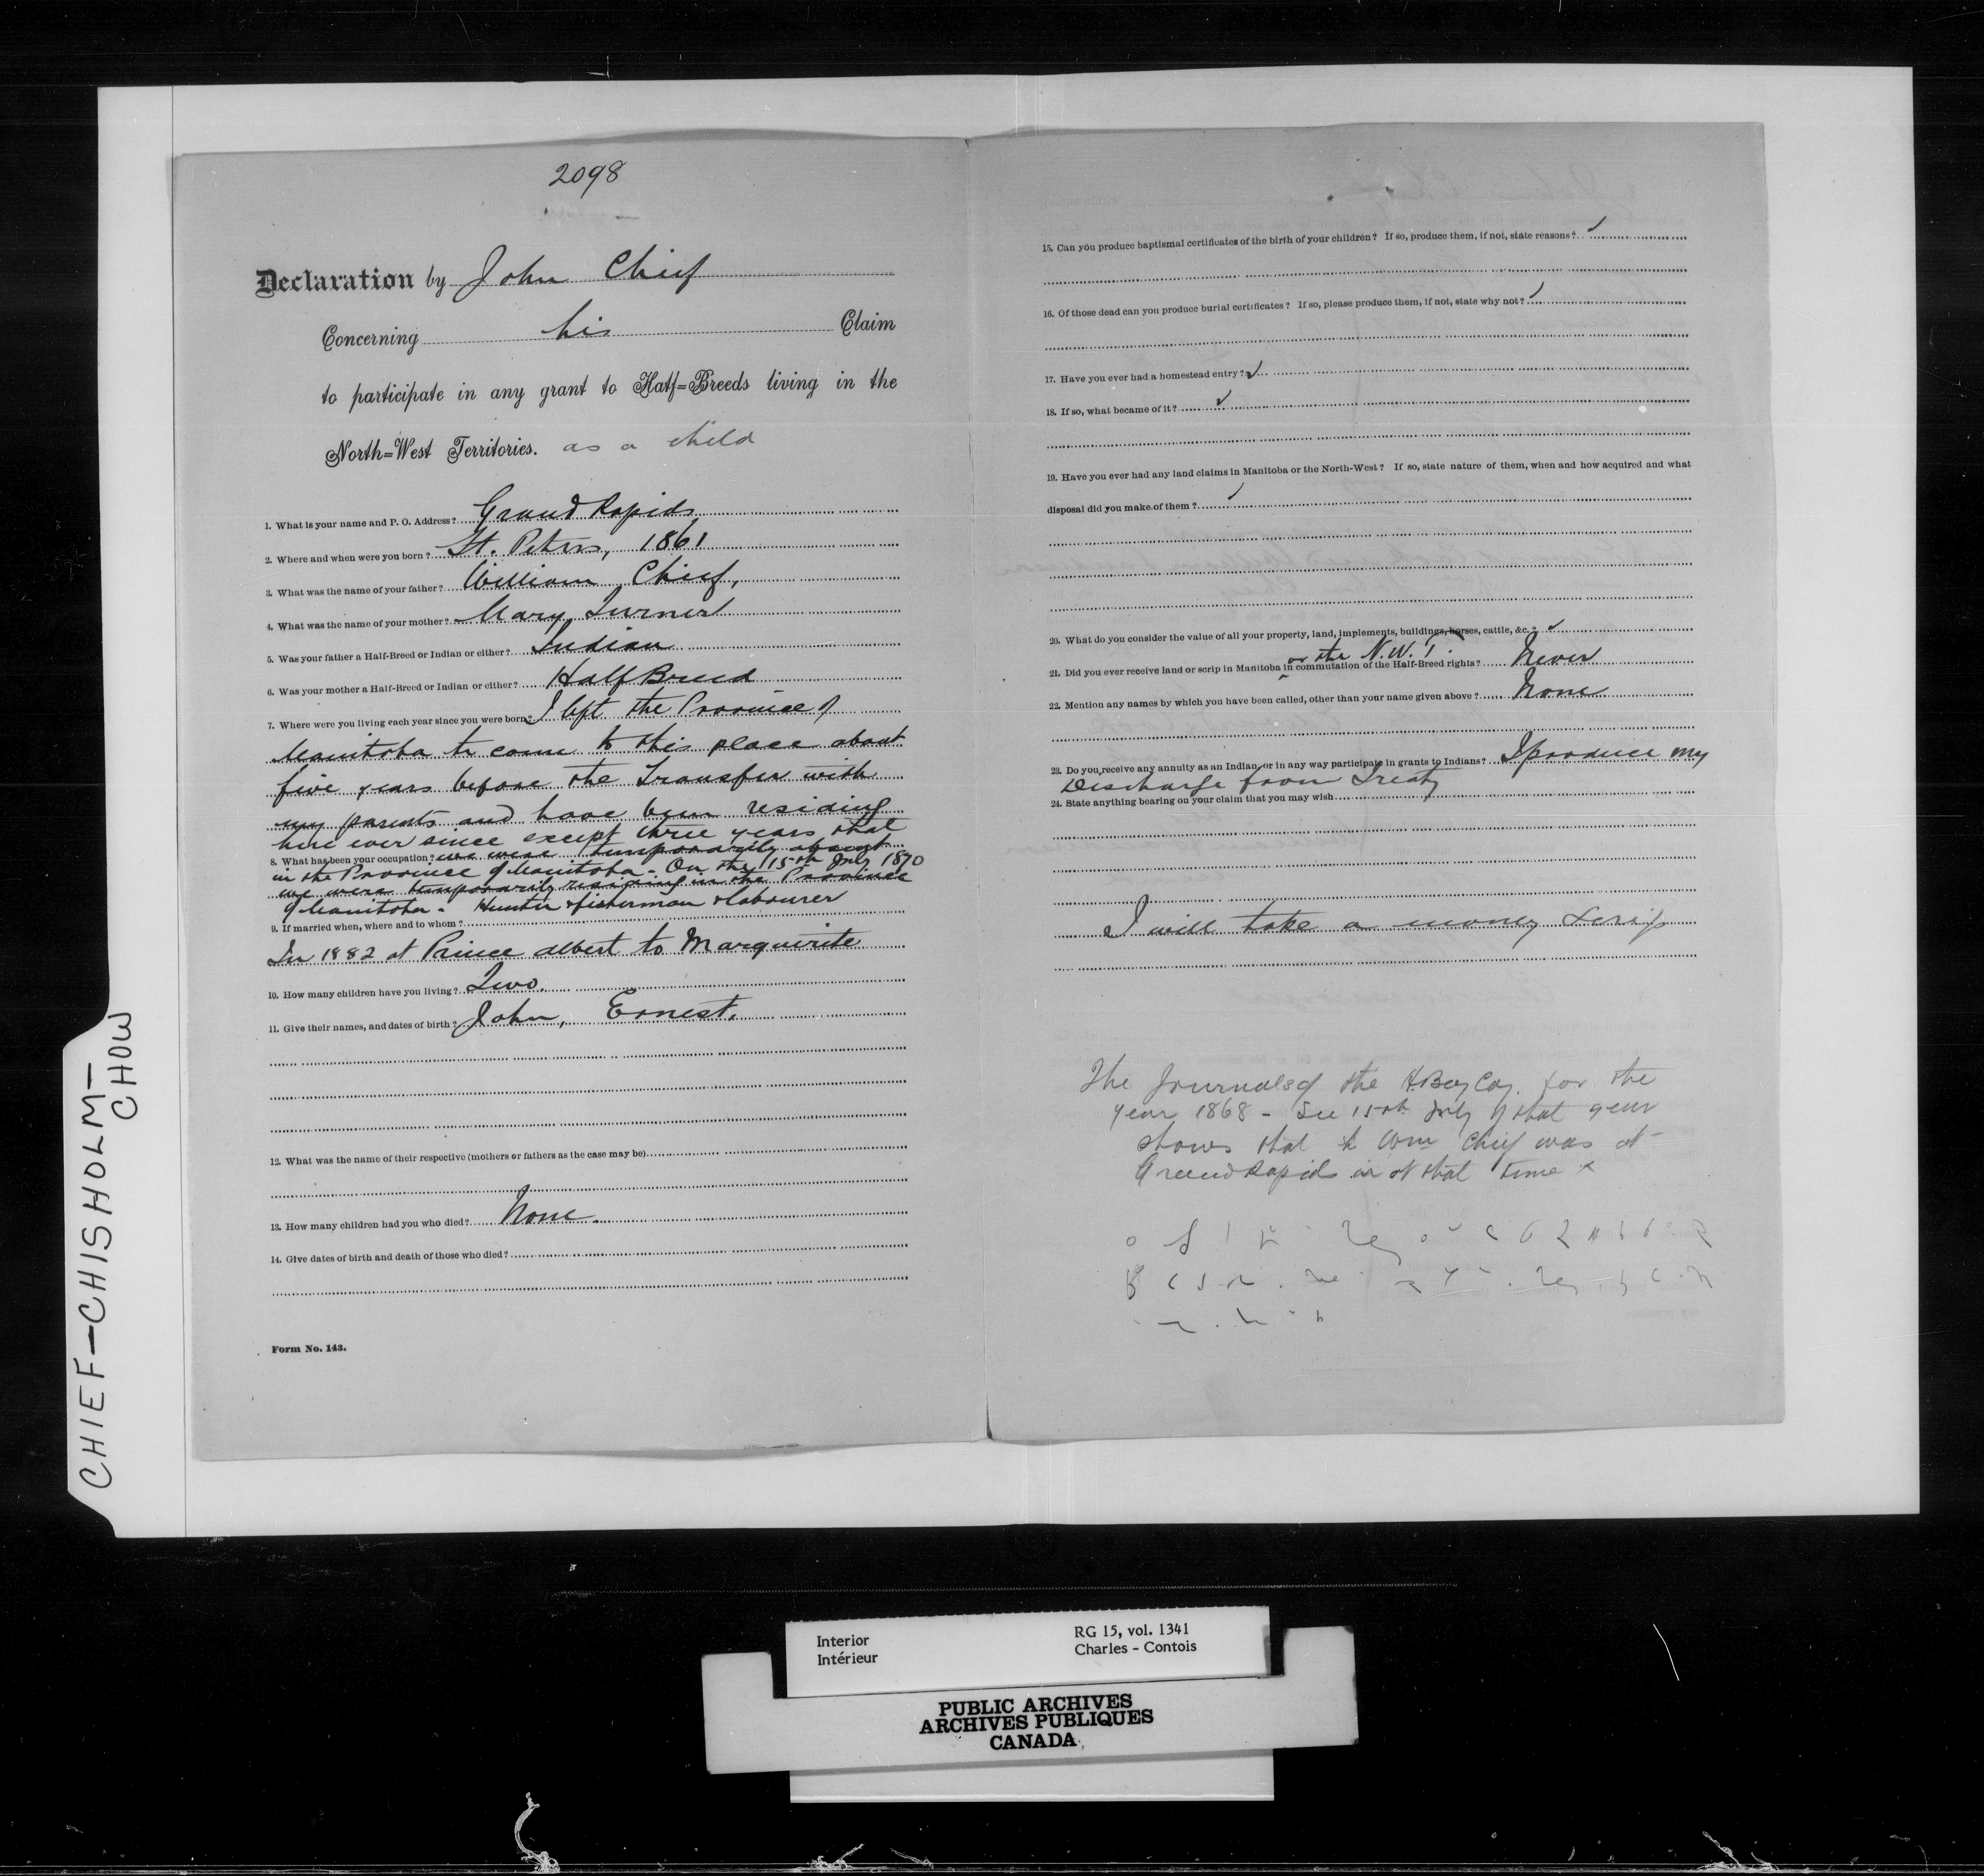 2098
Declaration by John Chief
Concerning his Claim
to participate in any grant to Half=Breeds living in the
North=West Territories. as a child
1. What is your name and P. O. Address? Grand Rapids
2. Where and when were you born? St. Peters, 1861
3. What was the name of your father? William Chief,
4. What was the name of your mother? Mary Turner
5. Was your father a Half-Breed or Indian or either? Indian
6. Was your mother a Half-Breed or Indian or either? Half Breed
7. Where were you living each year since you were born? I left the Province of
Manitoba to come to this place about
five years before the Transfer with
my parents and have been residing
here ever since except three years that
8. What has been your occupation? we were temporarily absent
in the Province of Manitoba - On the 15th July 1870
we were temporarily residing in the Province
of Manitoba - Hunter & fisherman & labourer
9. If married when, where and to whom?
In 1882 at Prince albert to Marguerite
10. How many children have you living? Two.
11. Give their names, and dates of birth? John, Ernest.
12. What was the name of their respective (mothers or fathers as the case may be)
13. How many children had you who died? None.
14. Give dates of birth and death of those who died?
Form No. 143.
15. Can you produce baptismal certificates of the birth of your children? If so, produce them, if not, state reasons? ✓
16. Of those dead can you produce burial certificates? If so, please produce them, if not, state why not? ✓
17. Have you ever had a homestead entry? ✓
18. If so, what became of it? ✓
19. Have you ever had any land claims in Manitoba or the North-West? If so, state nature of them, when and how acquired and what
disposal did you make of them? ✓
20. What do you consider the value of all your property, land, implements, buildings, horses, cattle, &c.? ✓
or the N.W.T.
21. Did you ever receive land or scrip in Manitoba in commutation of the Half-Breed rights? Never
22. Mention any names by which you have been called, other than your name given above? None
23. Do you receive any annuity as an Indian, or in any way participate in grants to Indians? I produce my
Discharge from Treaty
24. State anything bearing on your claim that you may wish
I will take a money scrip
The Journals of the H. Bay Coy. for the
year 1868 - See 15th July of that year
shows that Wm Chief was at
Grand Rapids at that time
CHIEF–CHISHOLM–
CHOW
Interior
Intérieur
RG 15, vol. 1341
Charles – Contois
PUBLIC ARCHIVES
ARCHIVES PUBLIQUES
CANADA